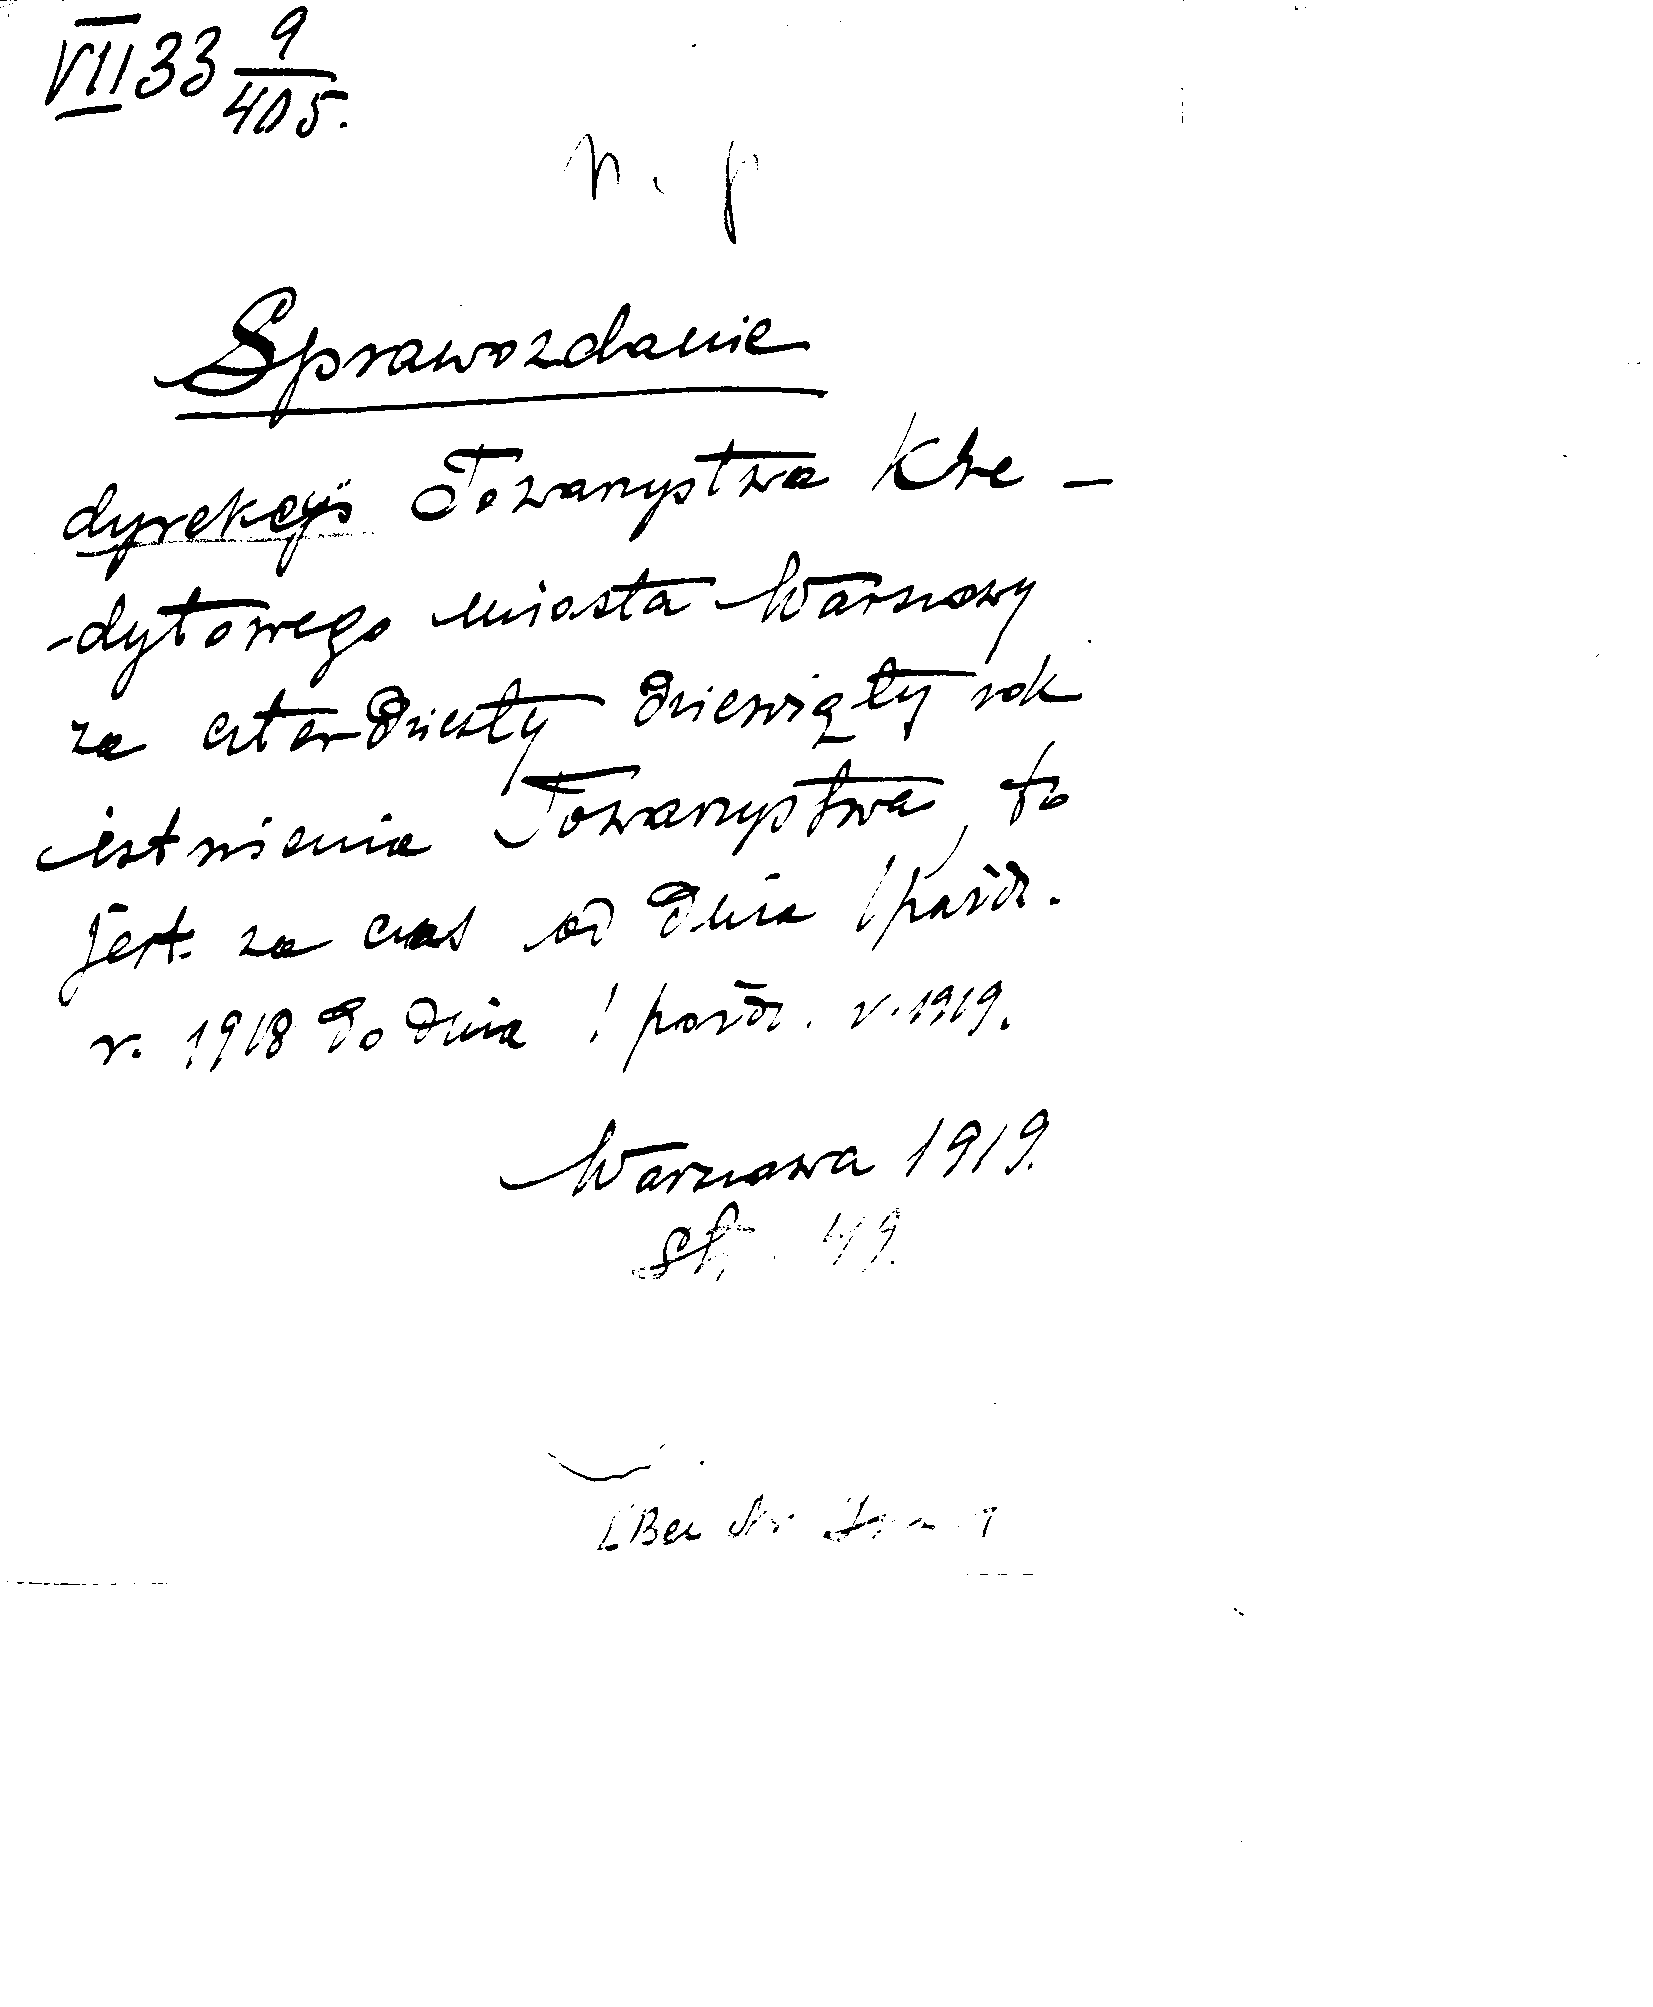 VII 33 9/405.
n. p
Sprawozdanie
dyrekcji Towarzystwa Kre-
-dytowego miasta Warszawy
za czterdziesty dziewiąty rok
istnienia Towarzystwa, to
jest. za czas od dnia 1 paźdz.
r. 1918 do dnia 1 paźdz. r. 1919.
Warszawa 1919.
St. 49.